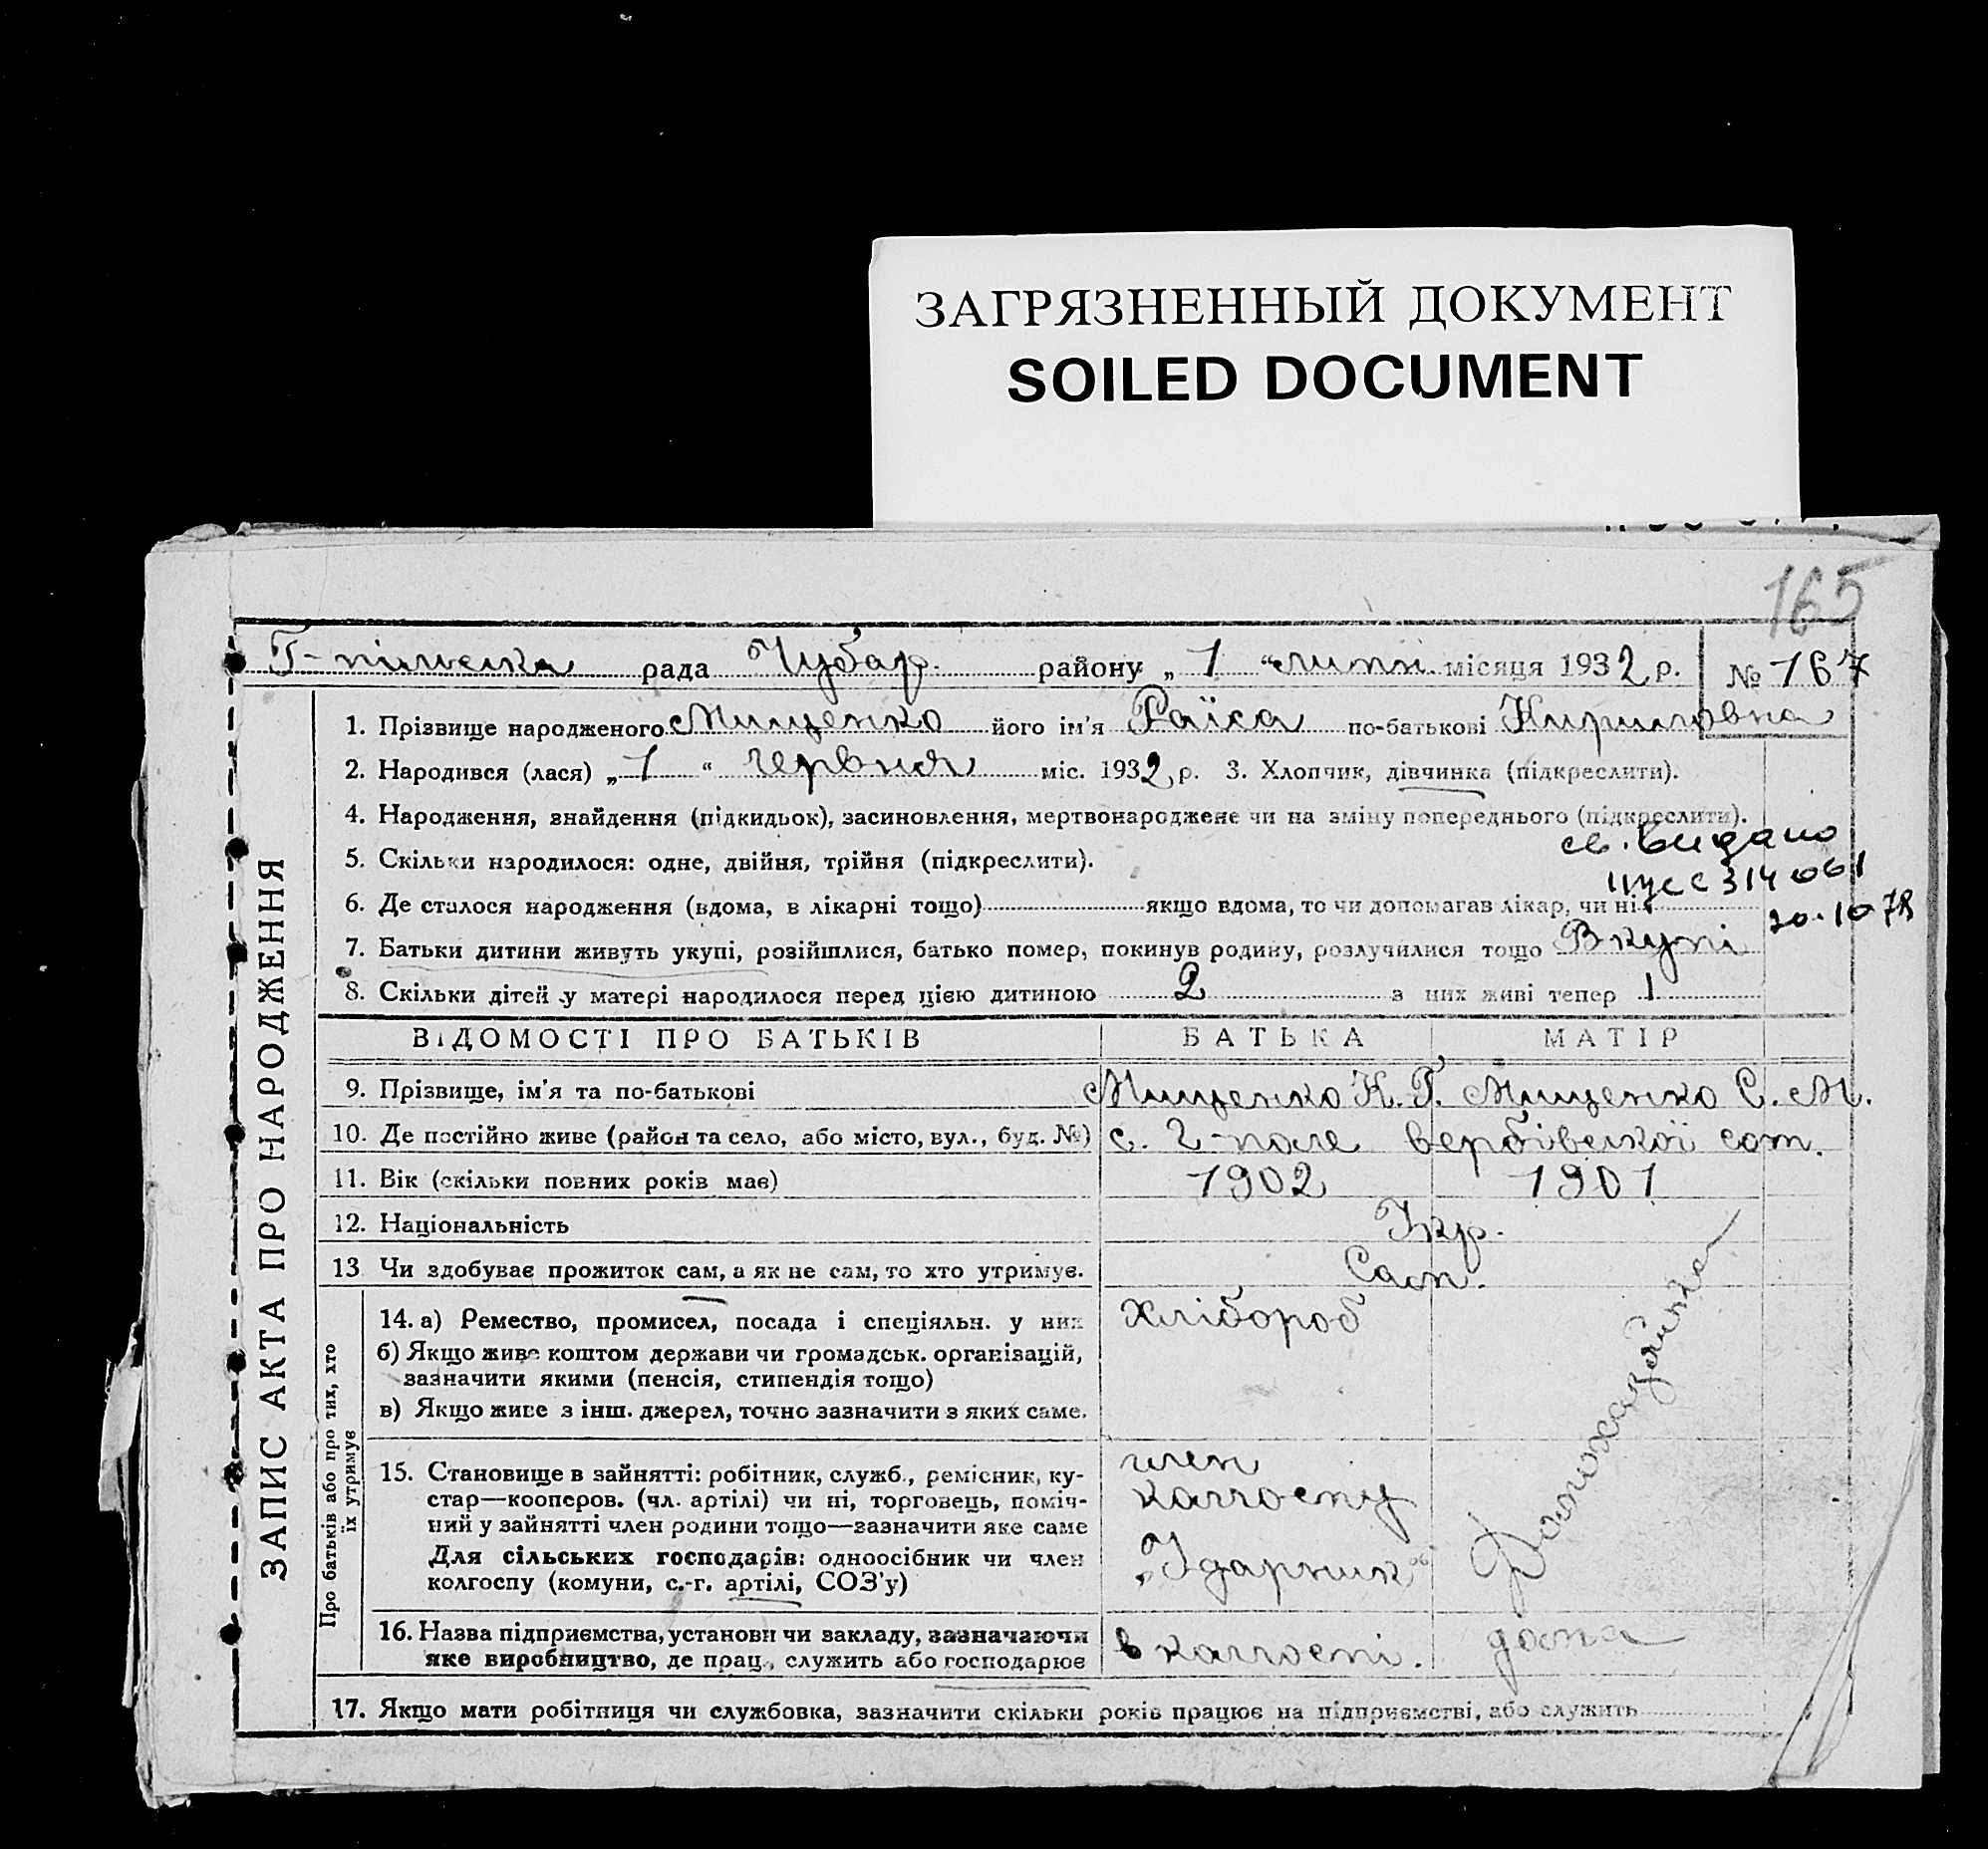 ЗАГРЯЗНЕННЫЙ ДОКУМЕНТ
SOILED DOCUMENT
165
Г-пільська рада Чубар. району „ 1 “ липн. місяця 1932 р. № 167
ЗАПИС АКТА ПРО НАРОДЖЕННЯ
1. Прізвище народженого Мищенко його ім'я Раїса по-батькові Кириловна
2. Народився (лася) „ 1 “ червня міс. 1932 р. 3. Хлопчик, дівчинка (підкреслити).
4. Народження, знайдення (підкидьок), засиновлення, мертвонароджене чи на зміну попереднього (підкреслити).
св. видано
5. Скільки народилося: одне, двійня, трійня (підкреслити).
314061
6. Де сталося народження (вдома, в лікарні тощо) якщо вдома, то чи допомагав лікар, чи ні
20.10 78
7. Батьки дитини живуть укупі, розійшлися, батько помер, покинув родину, розлучилися тощо Вкупі
8. Скільки дітей у матері народилося перед цією дитиною 2 з них живі тепер 1
ВІДОМОСТІ ПРО БАТЬКІВ БАТЬКА МАТІР
9. Прізвище, ім'я та по-батькові Мищенко К. Г. Мищенко С. М.
10. Де постійно живе (район та село, або місто, вул., буд. №) с. Г-поле Вербівської сот.
11. Вік (скільки повних років має) 1902 1901
12. Національність Укр.
13 Чи здобуває прожиток сам, а як не сам, то хто утримує. Сам.
Про батьків або про тих, хто
їх утримує
14. а) Ремество, промисел, посада і спеціяльн. у них Хлібороб
б) Якщо живе коштом держави чи громадськ. організацій,
зазначити якими (пенсія, стипендія тощо)
в) Якщо живе з інш. джерел, точно зазначити з яких саме.
Домохазяйка
15. Становище в зайнятті: робітник, служб., ремісник, ку-
стар—кооперов. (чл. артілі) чи ні, торговець, поміч-
ний у зайнятті член родини тощо—зазначити яке саме
Для сільських господарів: одноосібник чи член
колгоспу (комуни, с.-г. артілі, СОЗ'у)
член
колгоспу
„Ударник“
16. Назва підприємства, установи чи закладу, зазначаючи
яке виробництво, де прац., служить або господарює
в колгоспі. дома
17. Якщо мати робітниця чи службовка, зазначити скільки років працює на підприємстві, або служить